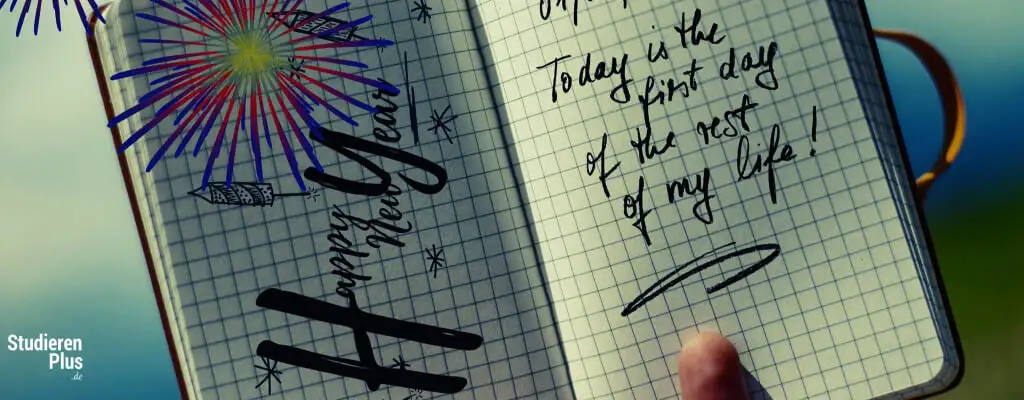 Happy
New Year
Today is the
first day
of the rest
of my life!
Studieren
Plus
.de